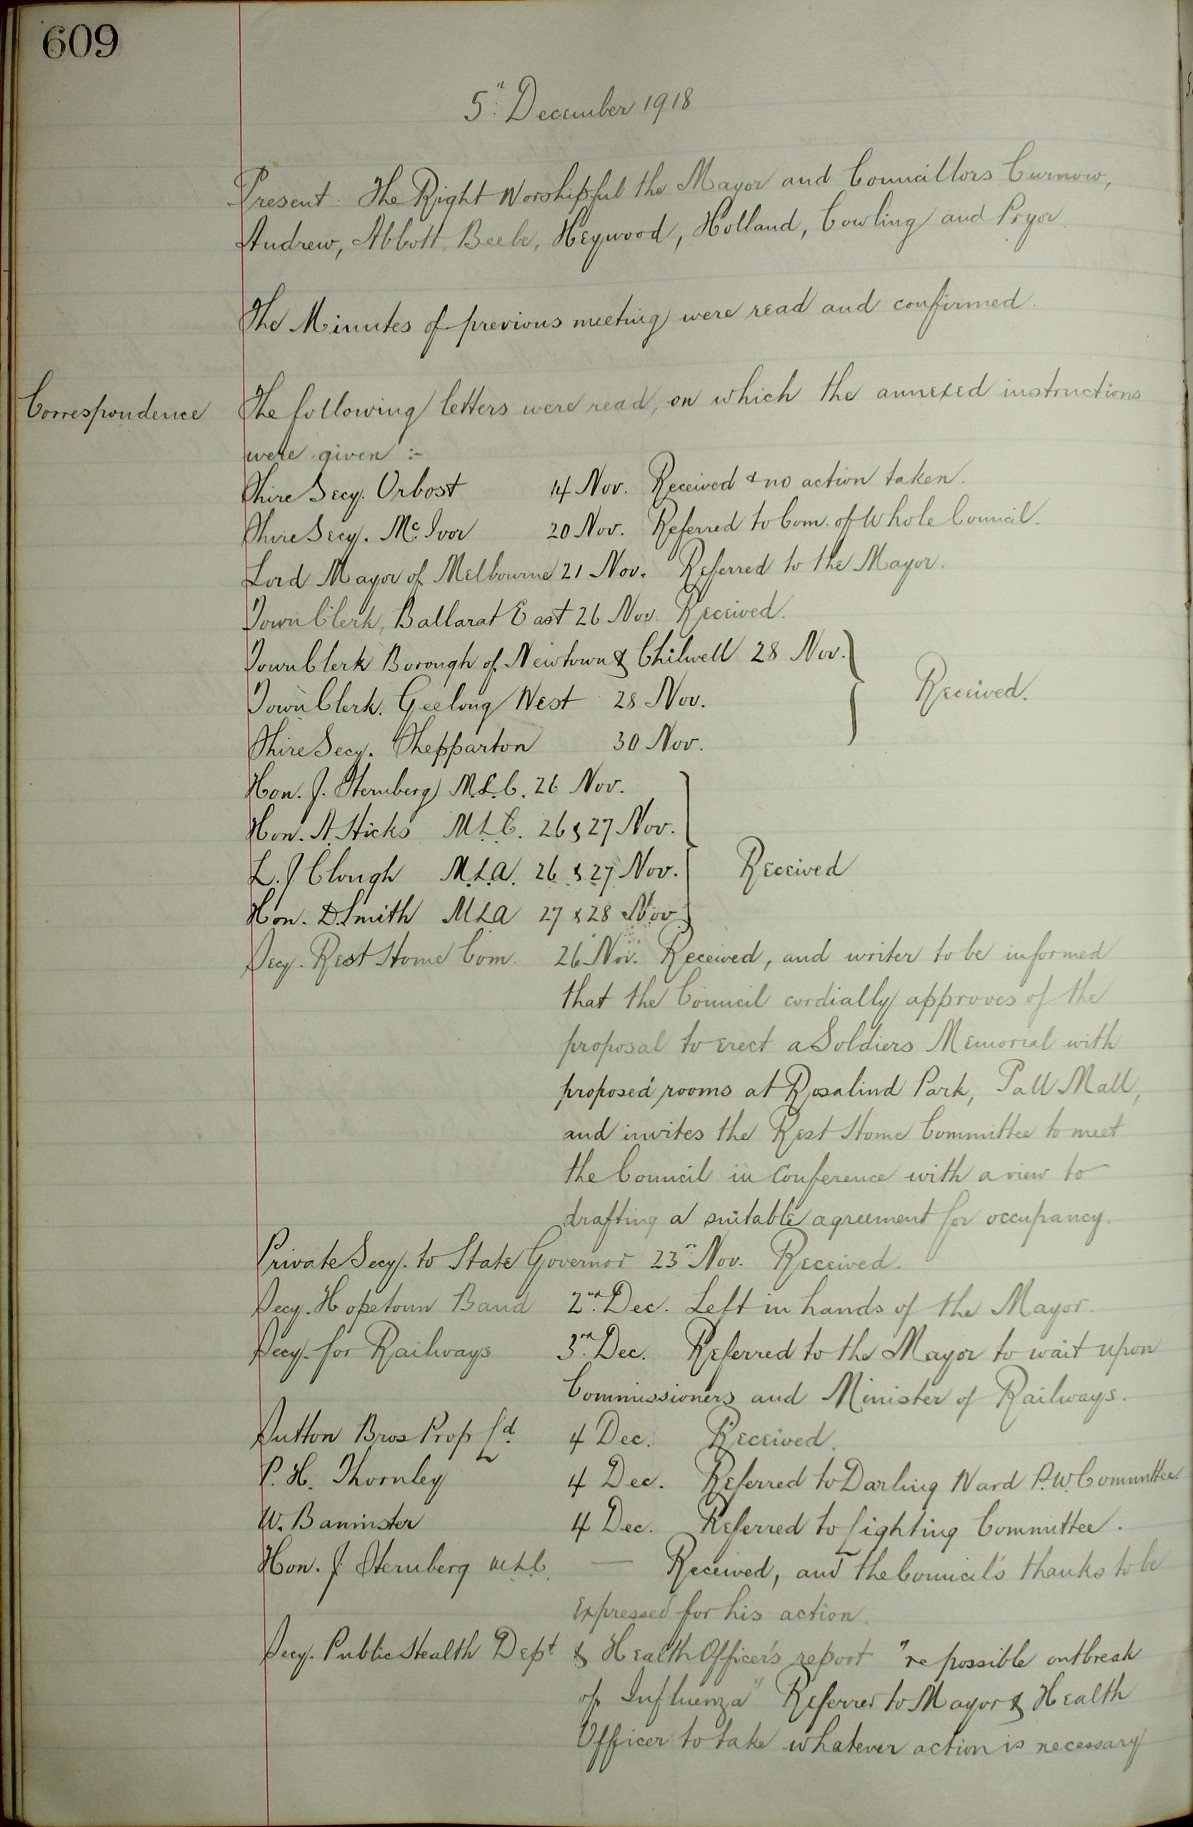 609
5th December 1918
Present: The Right Worshipful the Mayor and Councillors Curnow,
Andrew, Abbott, Beebe, Heywood, Holland, Cowling and Pryor
The Minutes of previous meeting were read and confirmed.
Correspondence The following letters were read, on which the annexed instructions
were given :-
Shire Secy. Orbost 14 Nov. Received & no action taken.
Shire Secy. McIvor 20 Nov. Referred to Com. of Whole Council.
Lord Mayor of Melbourne 21 Nov. Referred to the Mayor.
Town Clerk, Ballarat East 26 Nov. Received.
Town Clerk Borough of Newtown & Chilwell 28 Nov.
Town Clerk. Geelong West 28 Nov. Received.
Shire Secy. Shepparton 30 Nov.
Hon. J. Sternberg M.L.C. 26 Nov.
Hon. A. Hicks M.L.C. 26 & 27 Nov.
L. J Clough M.L.A. 26 & 27 Nov. Received
Hon. D. Smith MLA 27 & 28 Nov
Secy. Rest Home Com. 26 Nov. Received, and writer to be informed
that the Council cordially approves of the
proposal to erect a Soldiers Memorial with
proposed rooms at Rosalind Park, Pall Mall,
and invites the Rest Home Committee to meet
the Council in Conference with a view to
drafting a suitable agreement for occupancy.
Private Secy. to State Governor 23rd Nov. Received.
Secy. Hopetoun Band 2nd Dec. Left in hands of the Mayor.
Secy. for Railways 3rd Dec. Referred to the Mayor to wait upon
Commissioners and Minister of Railways.
Sutton Bros Prop Ld. 4 Dec. Received.
P. H. Thornley 4 Dec. Referred to Darling Ward P.W. Committee
W. Bannister 4 Dec. Referred to Lighting Committee.
Hon. J. Sternberg M.L.C. — Received, and the Council's thanks to be
expressed for his action.
Secy. Public Health Dept & Health Officer's report "re possible outbreak
of Influenza" Referred to Mayor & Health
Officer to take whatever action is necessary